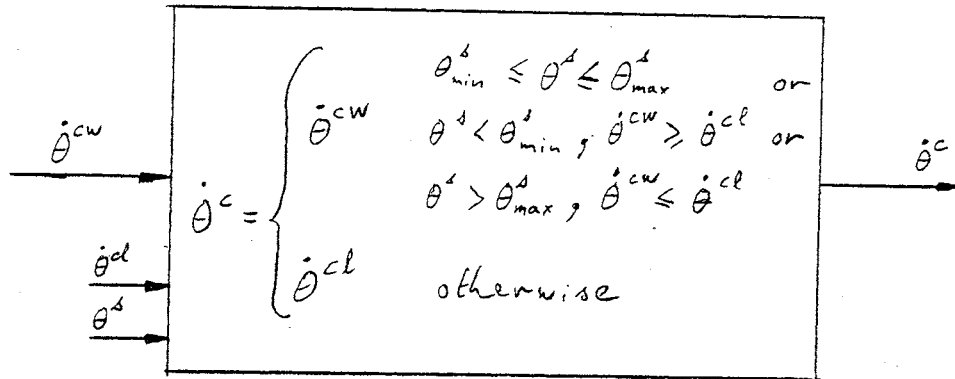 θ̇^cw
θ̇^cl
θ^s
θ̇^c =
θ̇^cw
θ^s_min ≤ θ^s ≤ θ^s_max or
θ^s < θ^s_min , θ̇^cw ≥ θ̇^cl or
θ^s > θ^s_max , θ̇^cw ≤ θ̇^cl
θ̇^cl otherwise
θ̇^c